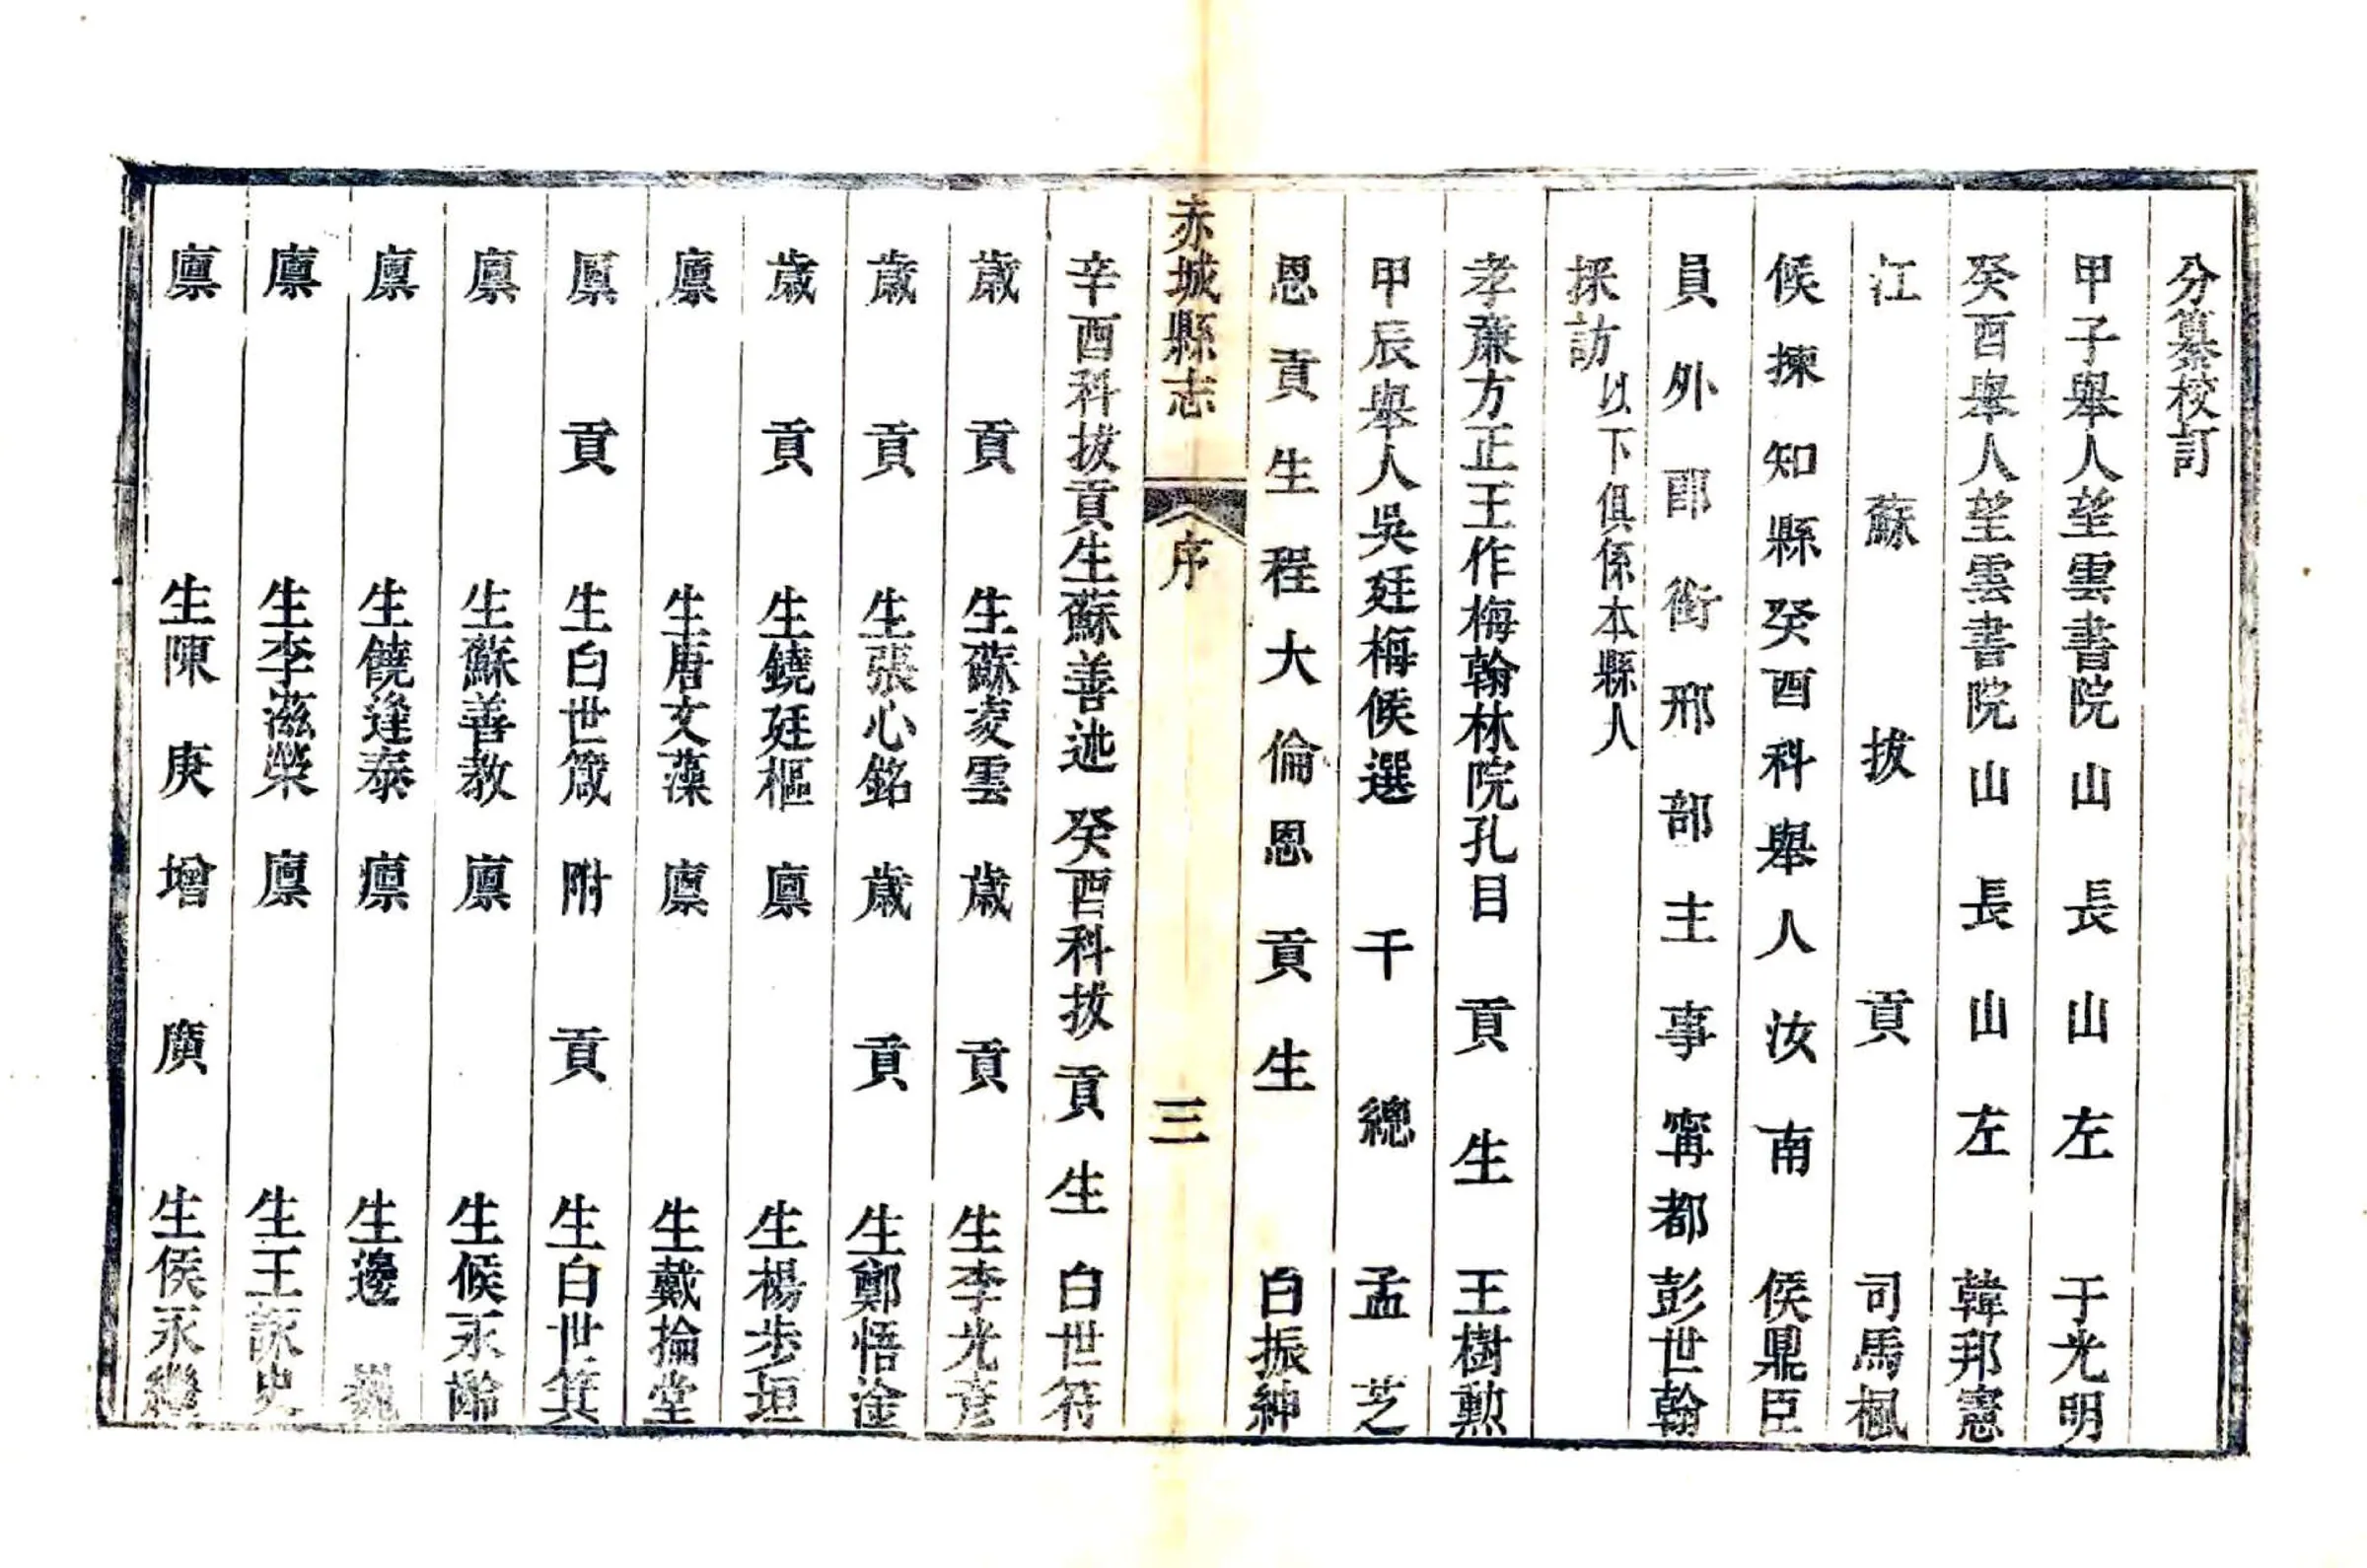 分纂校訂
甲子舉人望雲書院山長山左于光明
癸酉舉人望雲書院山長山左韓邦憲
江蘇拔貢司馬楓
候揀知縣癸酉科舉人汝南侯鼎臣
員外郎銜邢部主事甯都彭世翰
採訪以下俱係本縣人
孝亷方正王作梅翰林院孔目貢生王樹勲
甲辰舉人吳廷梅候選千總孟芝
恩貢生程大倫恩貢生白振紳
赤城縣志 序 三
辛酉科拔貢生蘇善述癸酉科拔貢生白世符
歲貢生蘇凌雲歲貢生李光彦
歲貢生張心銘歲貢生鄭悟淦
歲貢生鐃廷樞廩生楊步垣
廩生唐文藻廩生戴掄堂
廩貢生白世箴附貢生白世箕
廩生蘇善教廩生候永齡
廩生饒逢泰廩生邊
廩生李滋榮廩生王詠史
廩生陳庚增廣生侯永繼